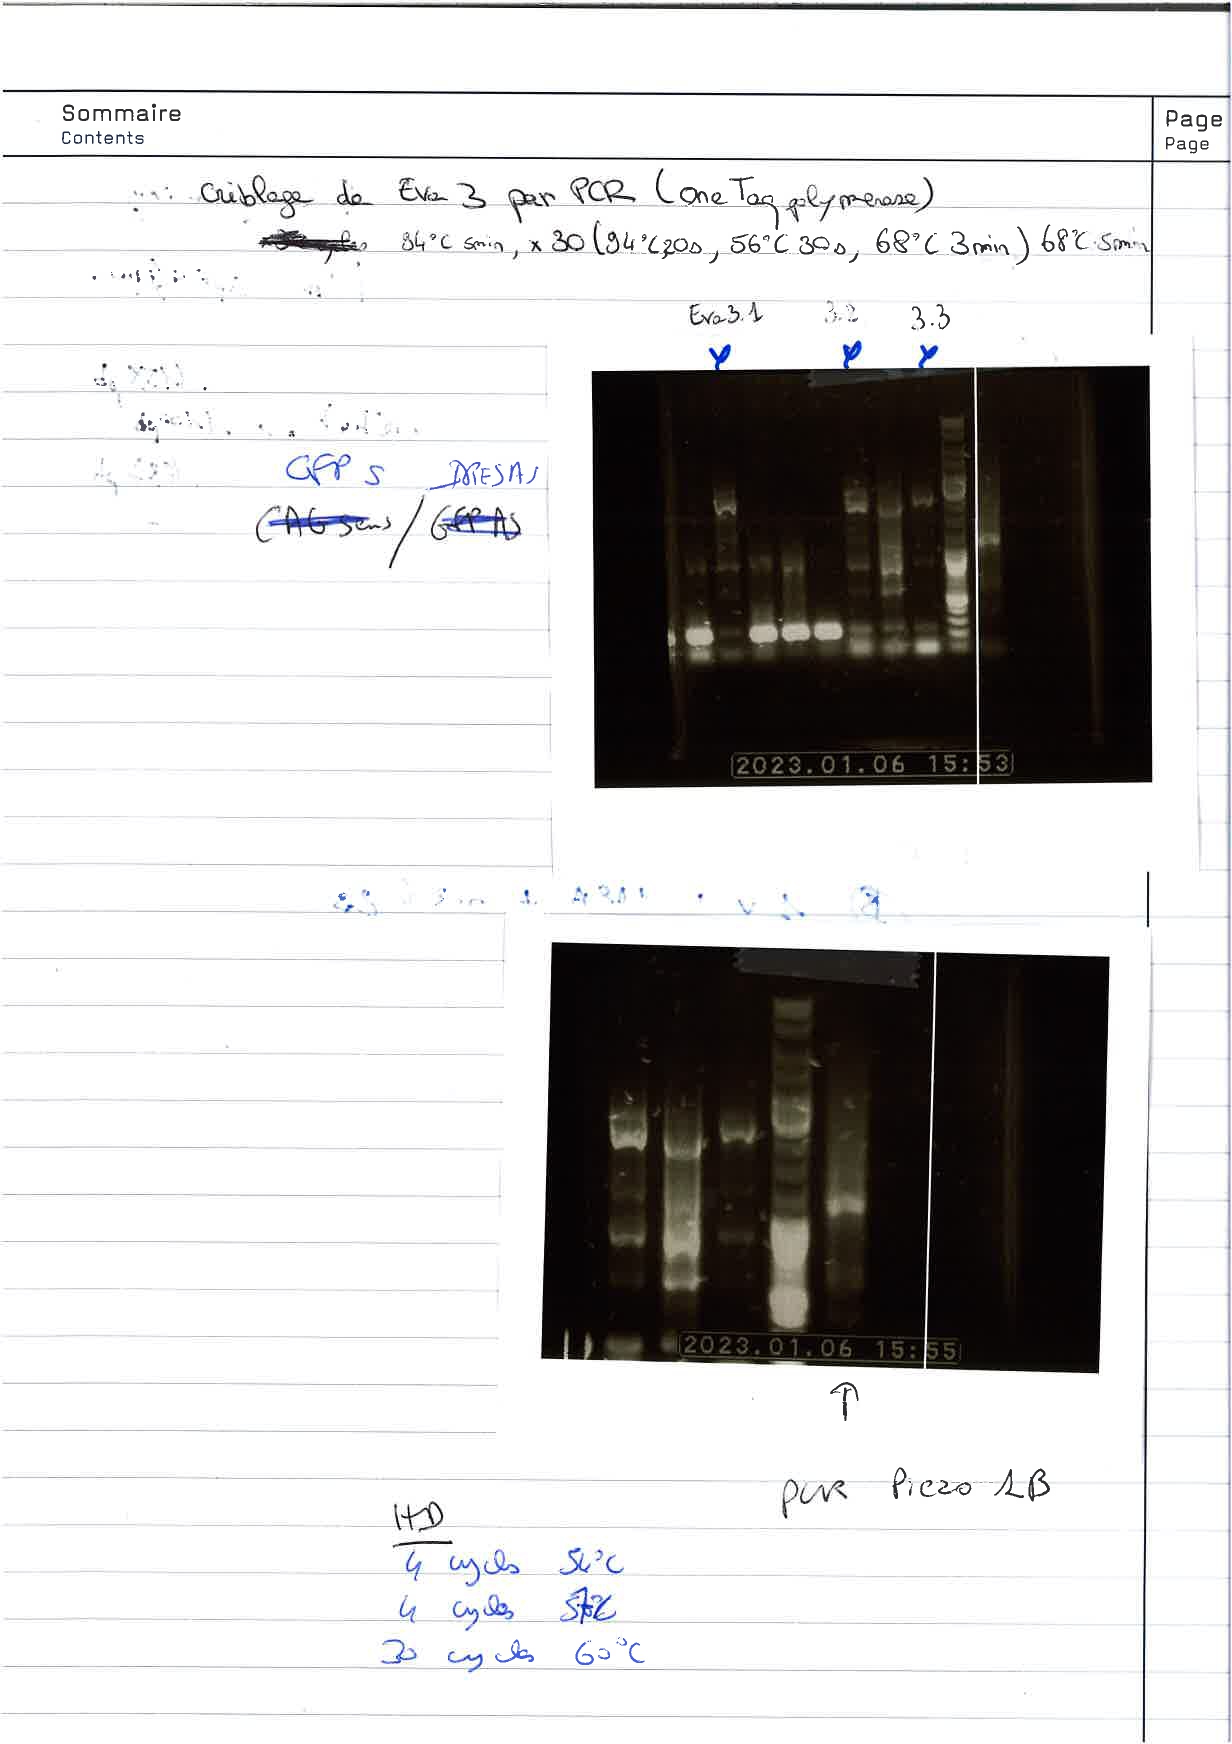 Sommaire
Contents
Page
Page
Criblage de Eva 3 par PCR (One Taq polymerase)
94°C 5min, x 30 (94°C 20s, 56°C 30s, 68°C 3min) 68°C 5min
Eva3.1 3.2 3.3
GFP S IRES AS
CAG sens / GFP AS
2023.01.06 15:53
2023.01.06 15:55
PCR Piezo 1B
HD
4 cycles 54°C
4 cycles 57°C
30 cycles 60°C